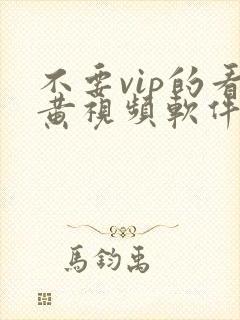 不要vip的看
黃視頻軟件
馬鈞禹